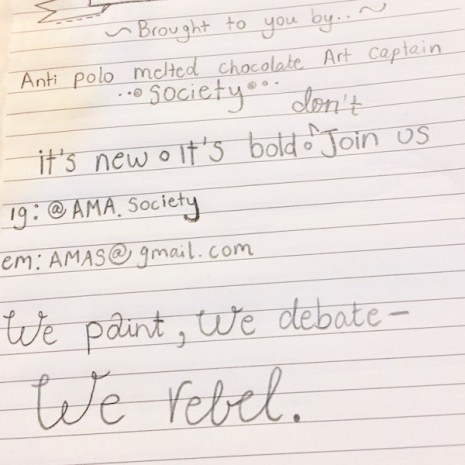 ~Brought to you by..~
Anti polo melted chocolate Art captain
...society...
don't
it's new. It's bold. Join us
ig: @AMA.Society
em: AMAS@gmail.com
We paint, We debate-
We rebel.